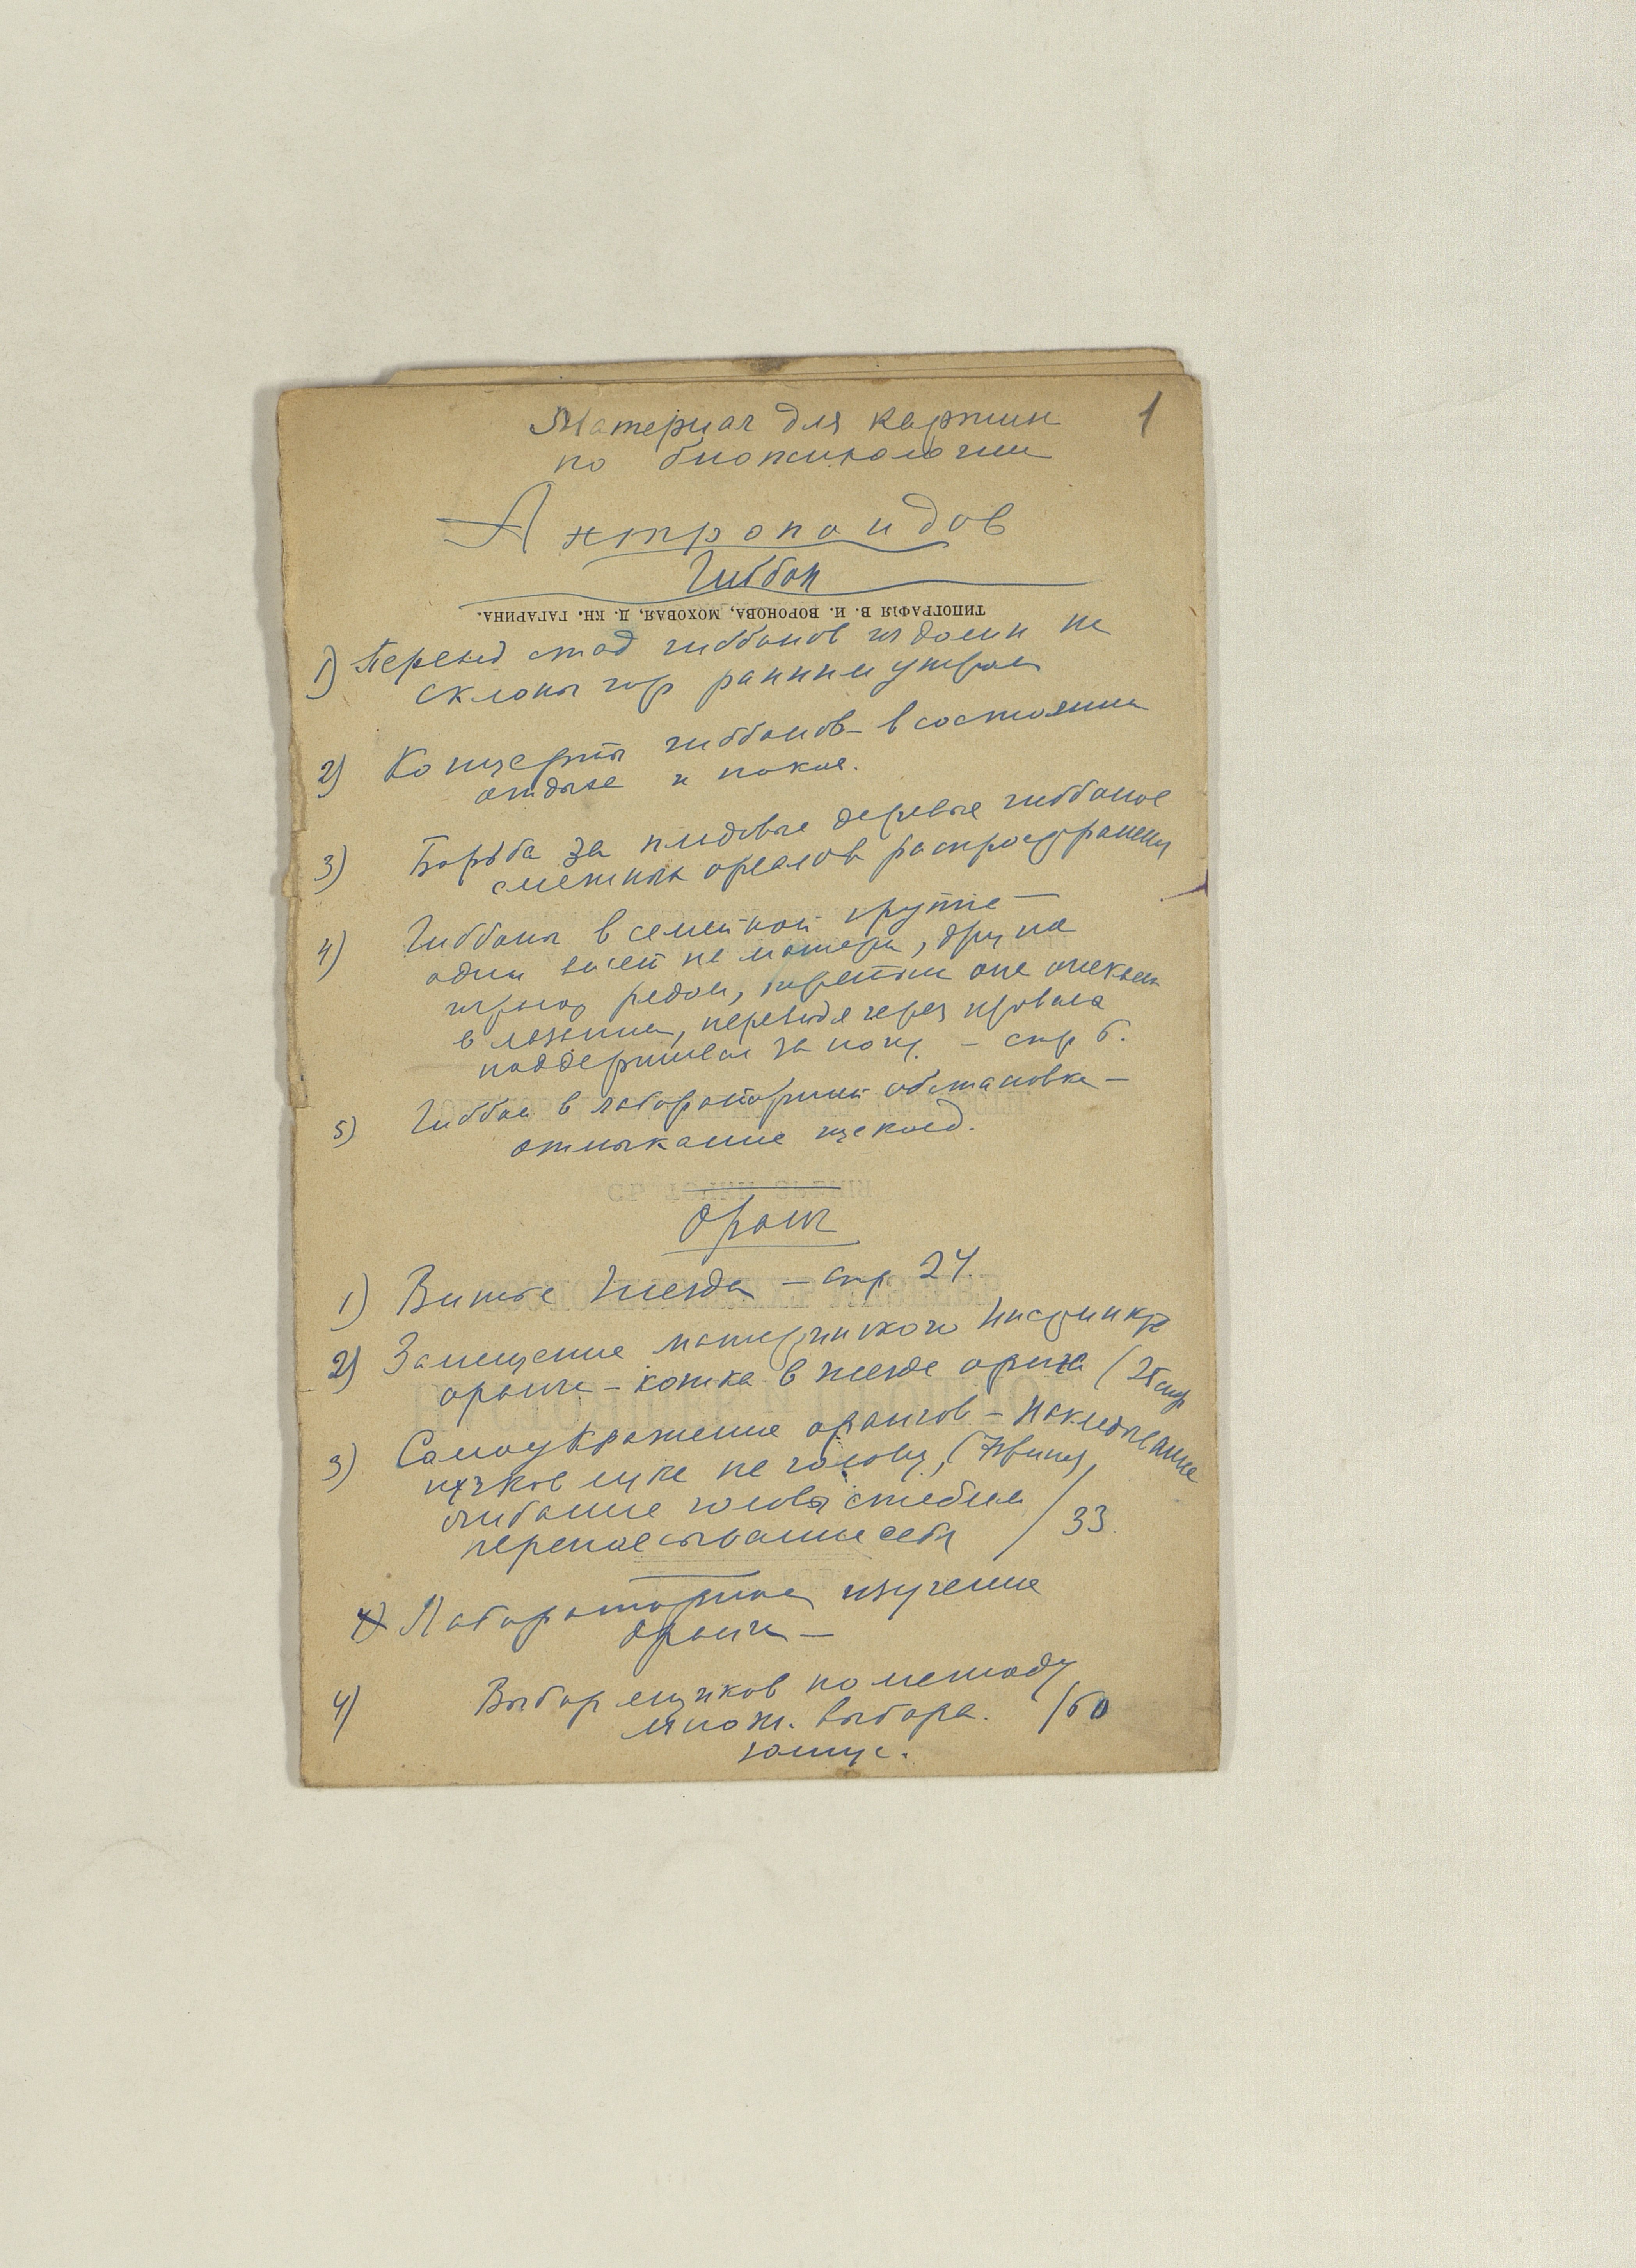 1
Материал для картин
по биопсихологии
Антропоидов
Гиббон
ТИПОГРАФІЯ В. И. ВОРОНОВА, МОХОВАЯ, Д. КН. ГАГАРИНА.
1) Переход стад гиббонов из долин на
склоны гор ранним утром
2) Концерты гиббонов в состоянии
отдыха и покоя.
3) Борьба за плодовые деревья гиббонов
смежных ареалов распространения
4) Гиббоны в семейной группе —
один висит на матери,
рядом,
в лазании, переходя через
поддерживая за ногу. — стр 6.
5) Гиббон в лабораторной обстановке —
отмыкание щеколд.
Оранг
1) Витье гнезда — стр 24.
2) Замещение материнского инстинкта
оранга — кошка в гнезде оранга (25 стр
3) Самоукрашение орангов — накладывание
пучков на голову,
голов стеблем
перепоясывание себя / 33.
Лабораторное изучение
оранга —
4) Выбор ящиков по методу
множ. выбора. /60